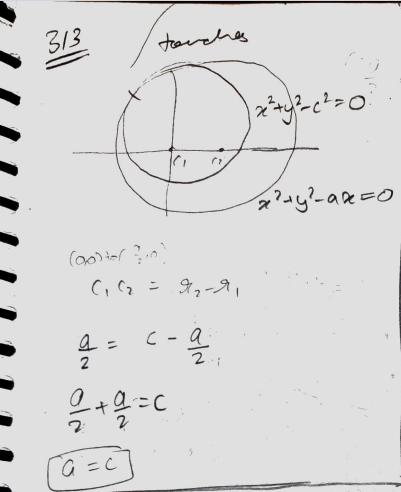 313
touches
x²+y²-c²=0
C₁ C₂
x²+y²-ax=0
C₁ C₂ = r₂-r₁
a/2 = c - a/2
a/2 + a/2 = c
a = c